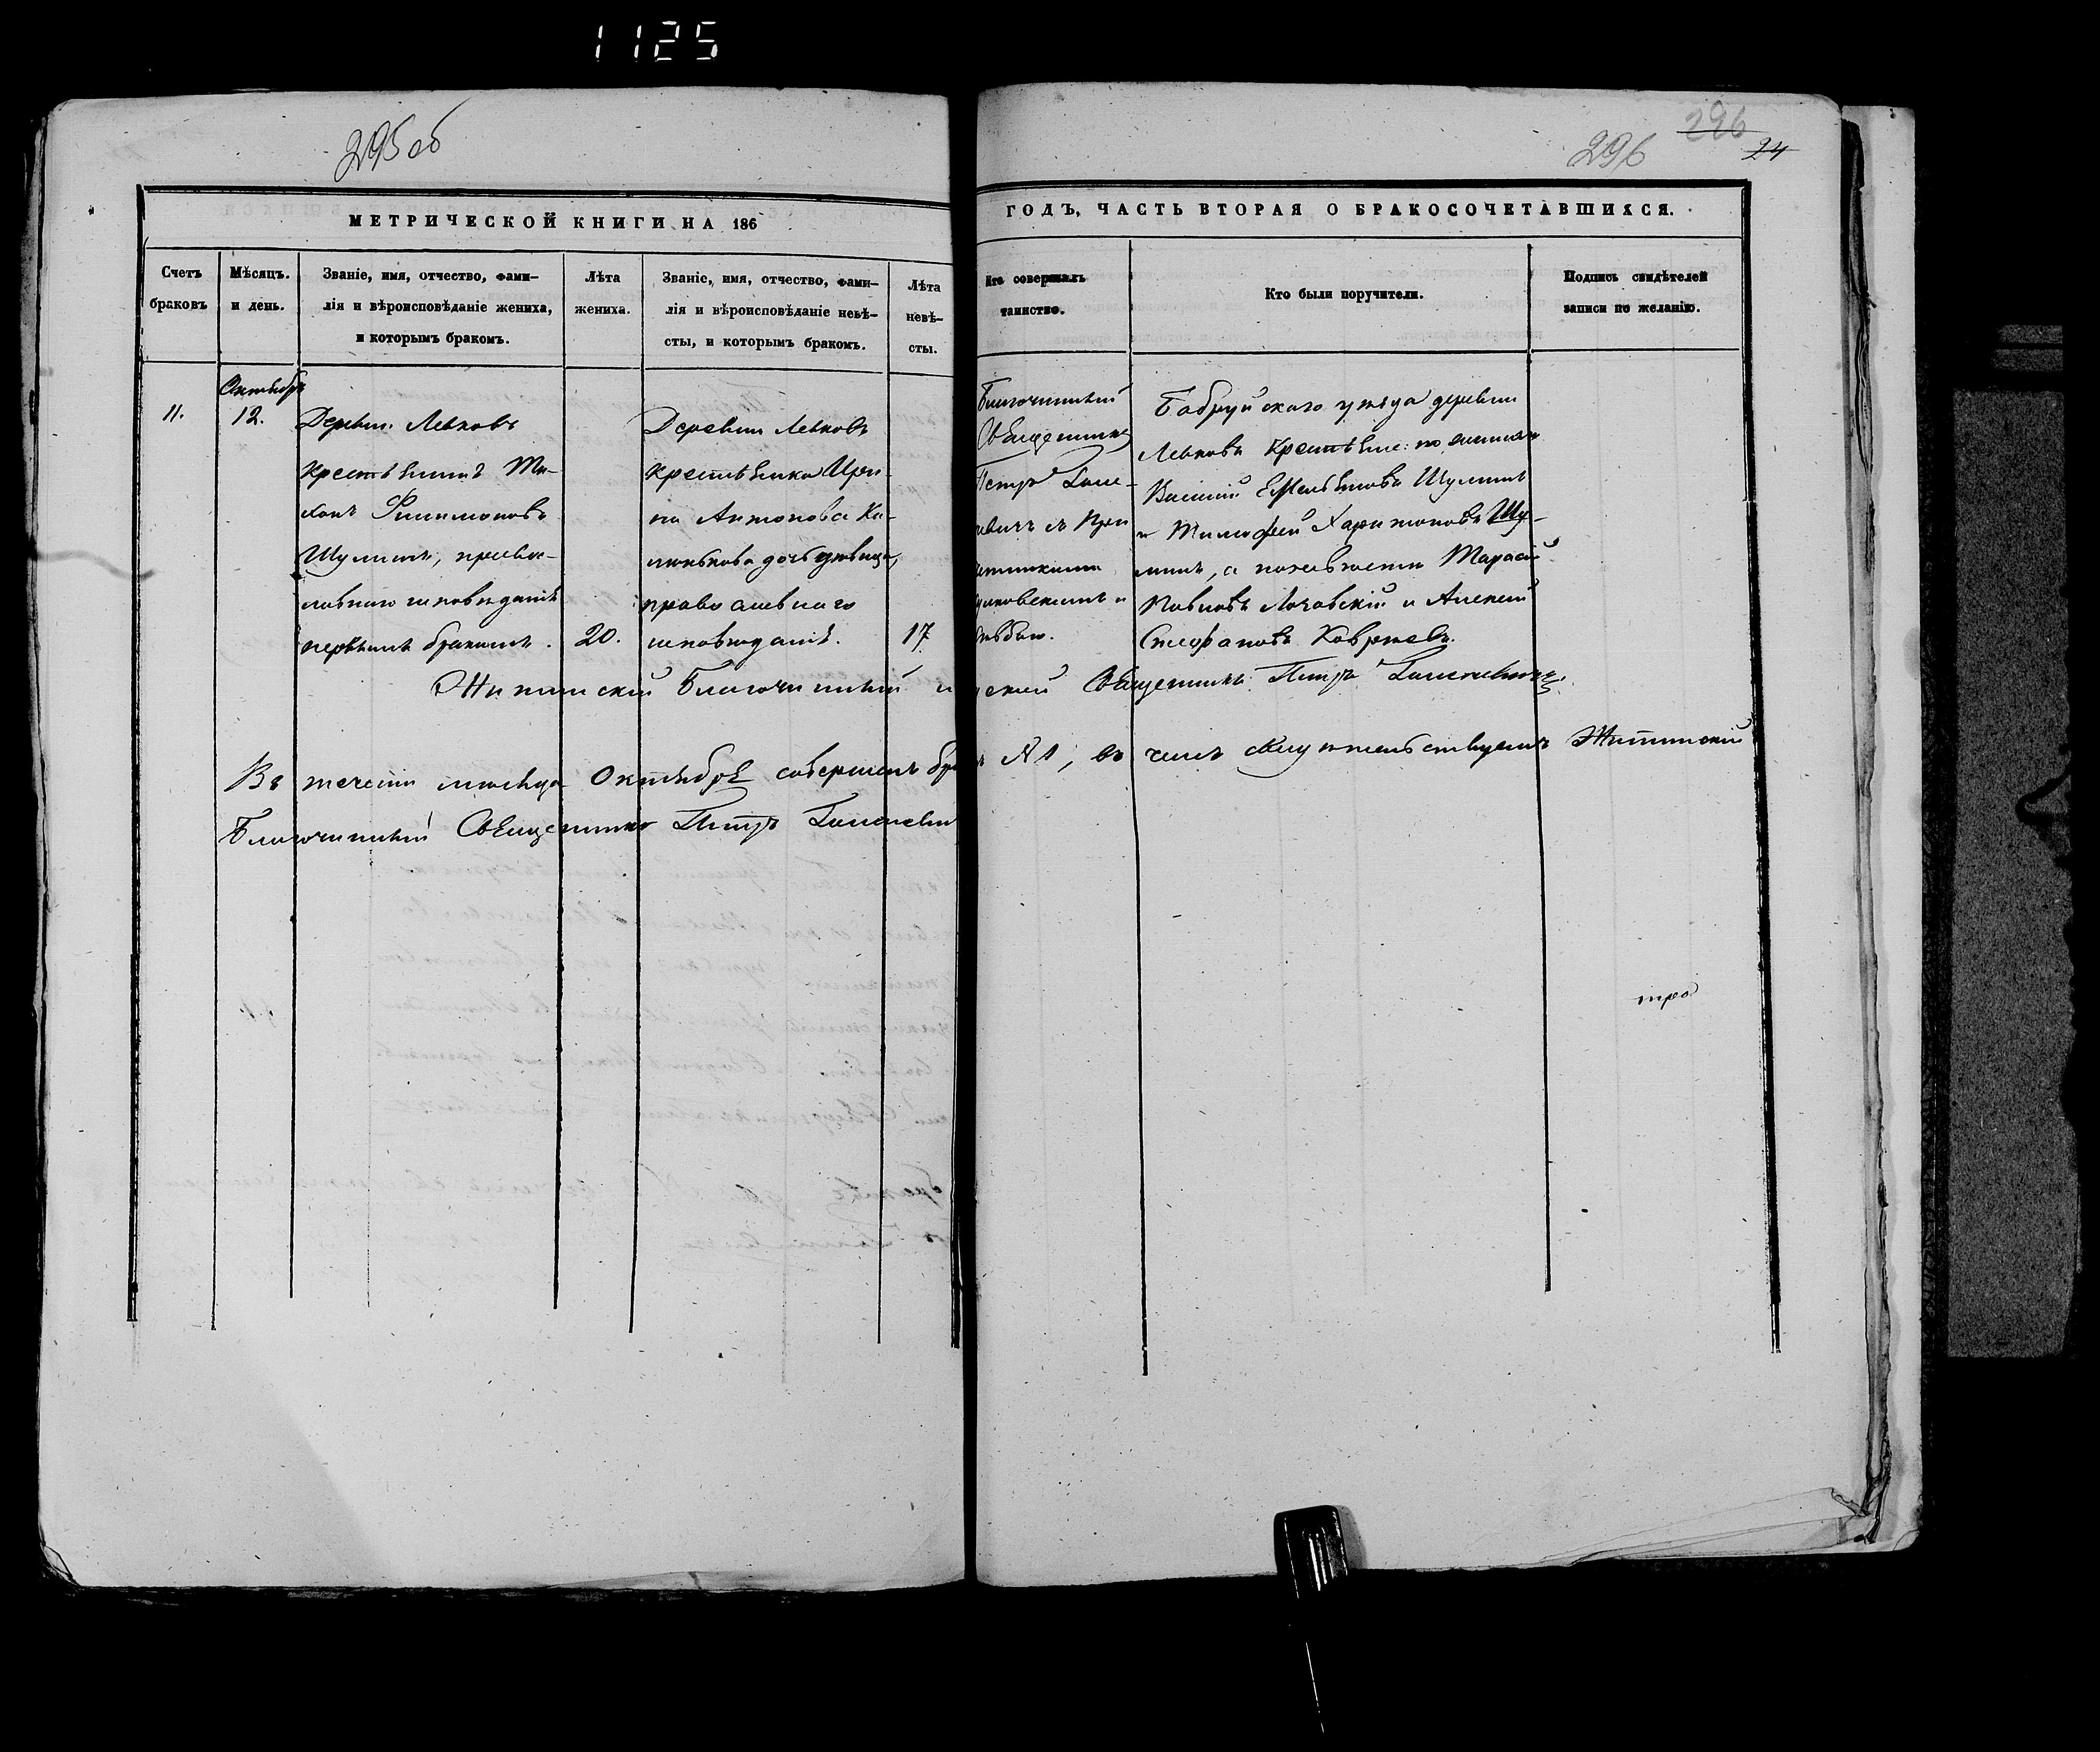 1125
295 об
296
296
24
МЕТРИЧЕСКОЙ КНИГИ НА 186
ГОДЪ, ЧАСТЬ ВТОРАЯ О БРАКОСОЧЕТАВШИХСЯ.
Счетъ
браковъ
Мѣсяцъ.
и день.
Званіе, имя, отчество, фами-
лія и вѣроисповѣданіе жениха,
и которымъ бракомъ.
Лѣта
жениха.
Званіе, имя, отчество, фами-
лія и вѣроисповѣданіе невѣ-
сты, и которымъ бракомъ.
Лѣта
невѣ-
сты.
Кто совершалъ
таинство.
Кто были поручители.
Подпись свидѣтелей
записи по желанію.
11.
Октябрь
12.
Деревни Левковъ
крестьянинъ Ти-
хонъ Филимоновъ
Шуминъ, правос-
лавнаго исповѣданія
первымъ бракомъ.
20.
Деревни Левковъ
крестьянка Ири-
на Антонова
дочь дѣвица,
православнаго
исповѣданія.
17
Благочинный
Священникъ
Петръ
Бобруйскаго уѣзда деревни
Левковъ крестьяне: по женихѣ
Василій Емельяновъ Шуминъ
и Тимофей Харитоновъ Шу-
минъ, а по невѣстѣ Тарасій
Павловъ и Алексій
Стефановъ
Житинскій Благочинный
Священникъ Петръ
Въ теченіи мѣсяца Октября совершенъ бра
№ 1, въ чемъ свидѣтельствуетъ Житинскій
Благочинный Священникъ Петръ